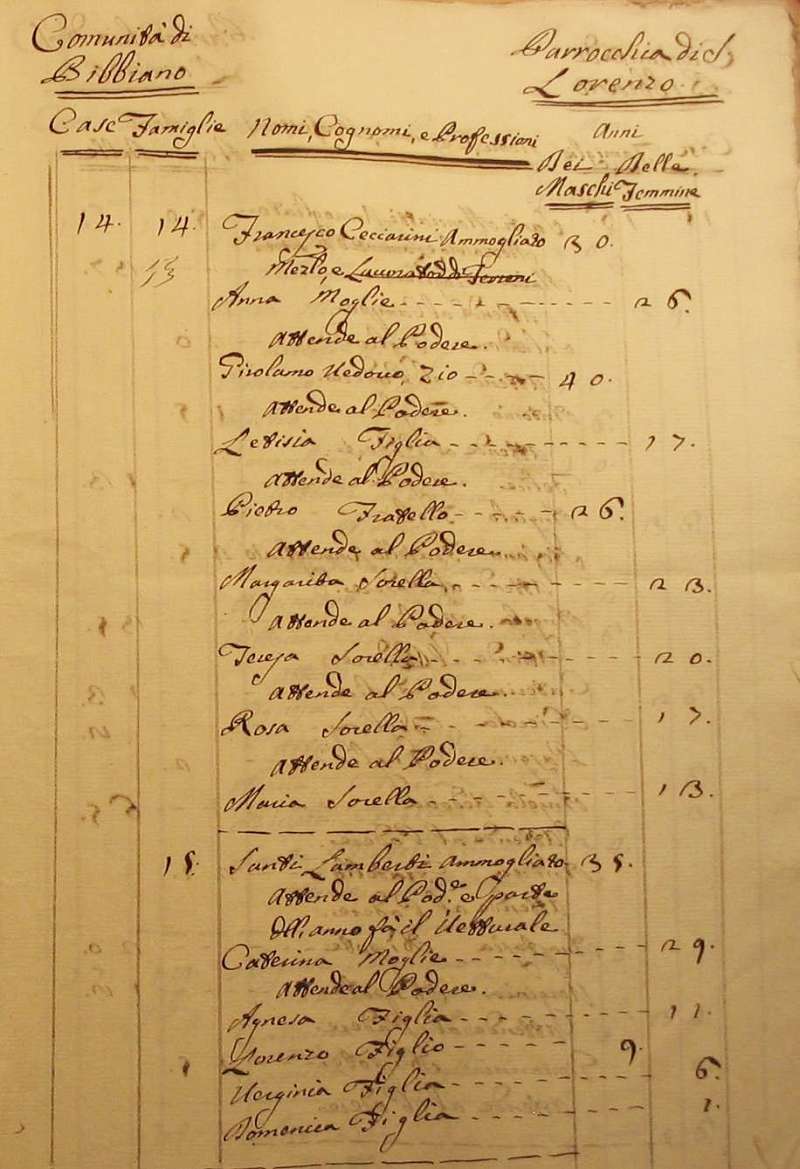 Comunità di
Bibbiano
Parrocchia di S.
Lorenzo
Case Famiglie Nomi, Cognomi, e Professioni Anni
Dei Delle
Maschi Femmine
14. 14. Francesco Ceccarini Ammogliato 30.
13 e Lavorat. di Terreni
Anna Moglie 26.
Attende al Podere.
Girolamo Vedovo, Zio 40.
Attende al Podere.
Letisia Figlia 17.
Attende al Podere.
Pietro Fratello 26.
Attende al Podere.
Margarita Sorella 23.
Attende al Podere.
Teresa Sorella 20.
Attende al Podere.
Rosa Sorella 17.
Attende al Podere.
Maria Sorella 13.
15. Santi Lamberti Ammogliato 35.
Attende al Pod.e e parte
dell'anno fà il Vetturale
Caterina Moglie 29.
Attende al Podere.
Agnesa Figlia 11.
Lorenzo Figlio 9.
Verginia Figlia 6.
Domenica Figlia 1.